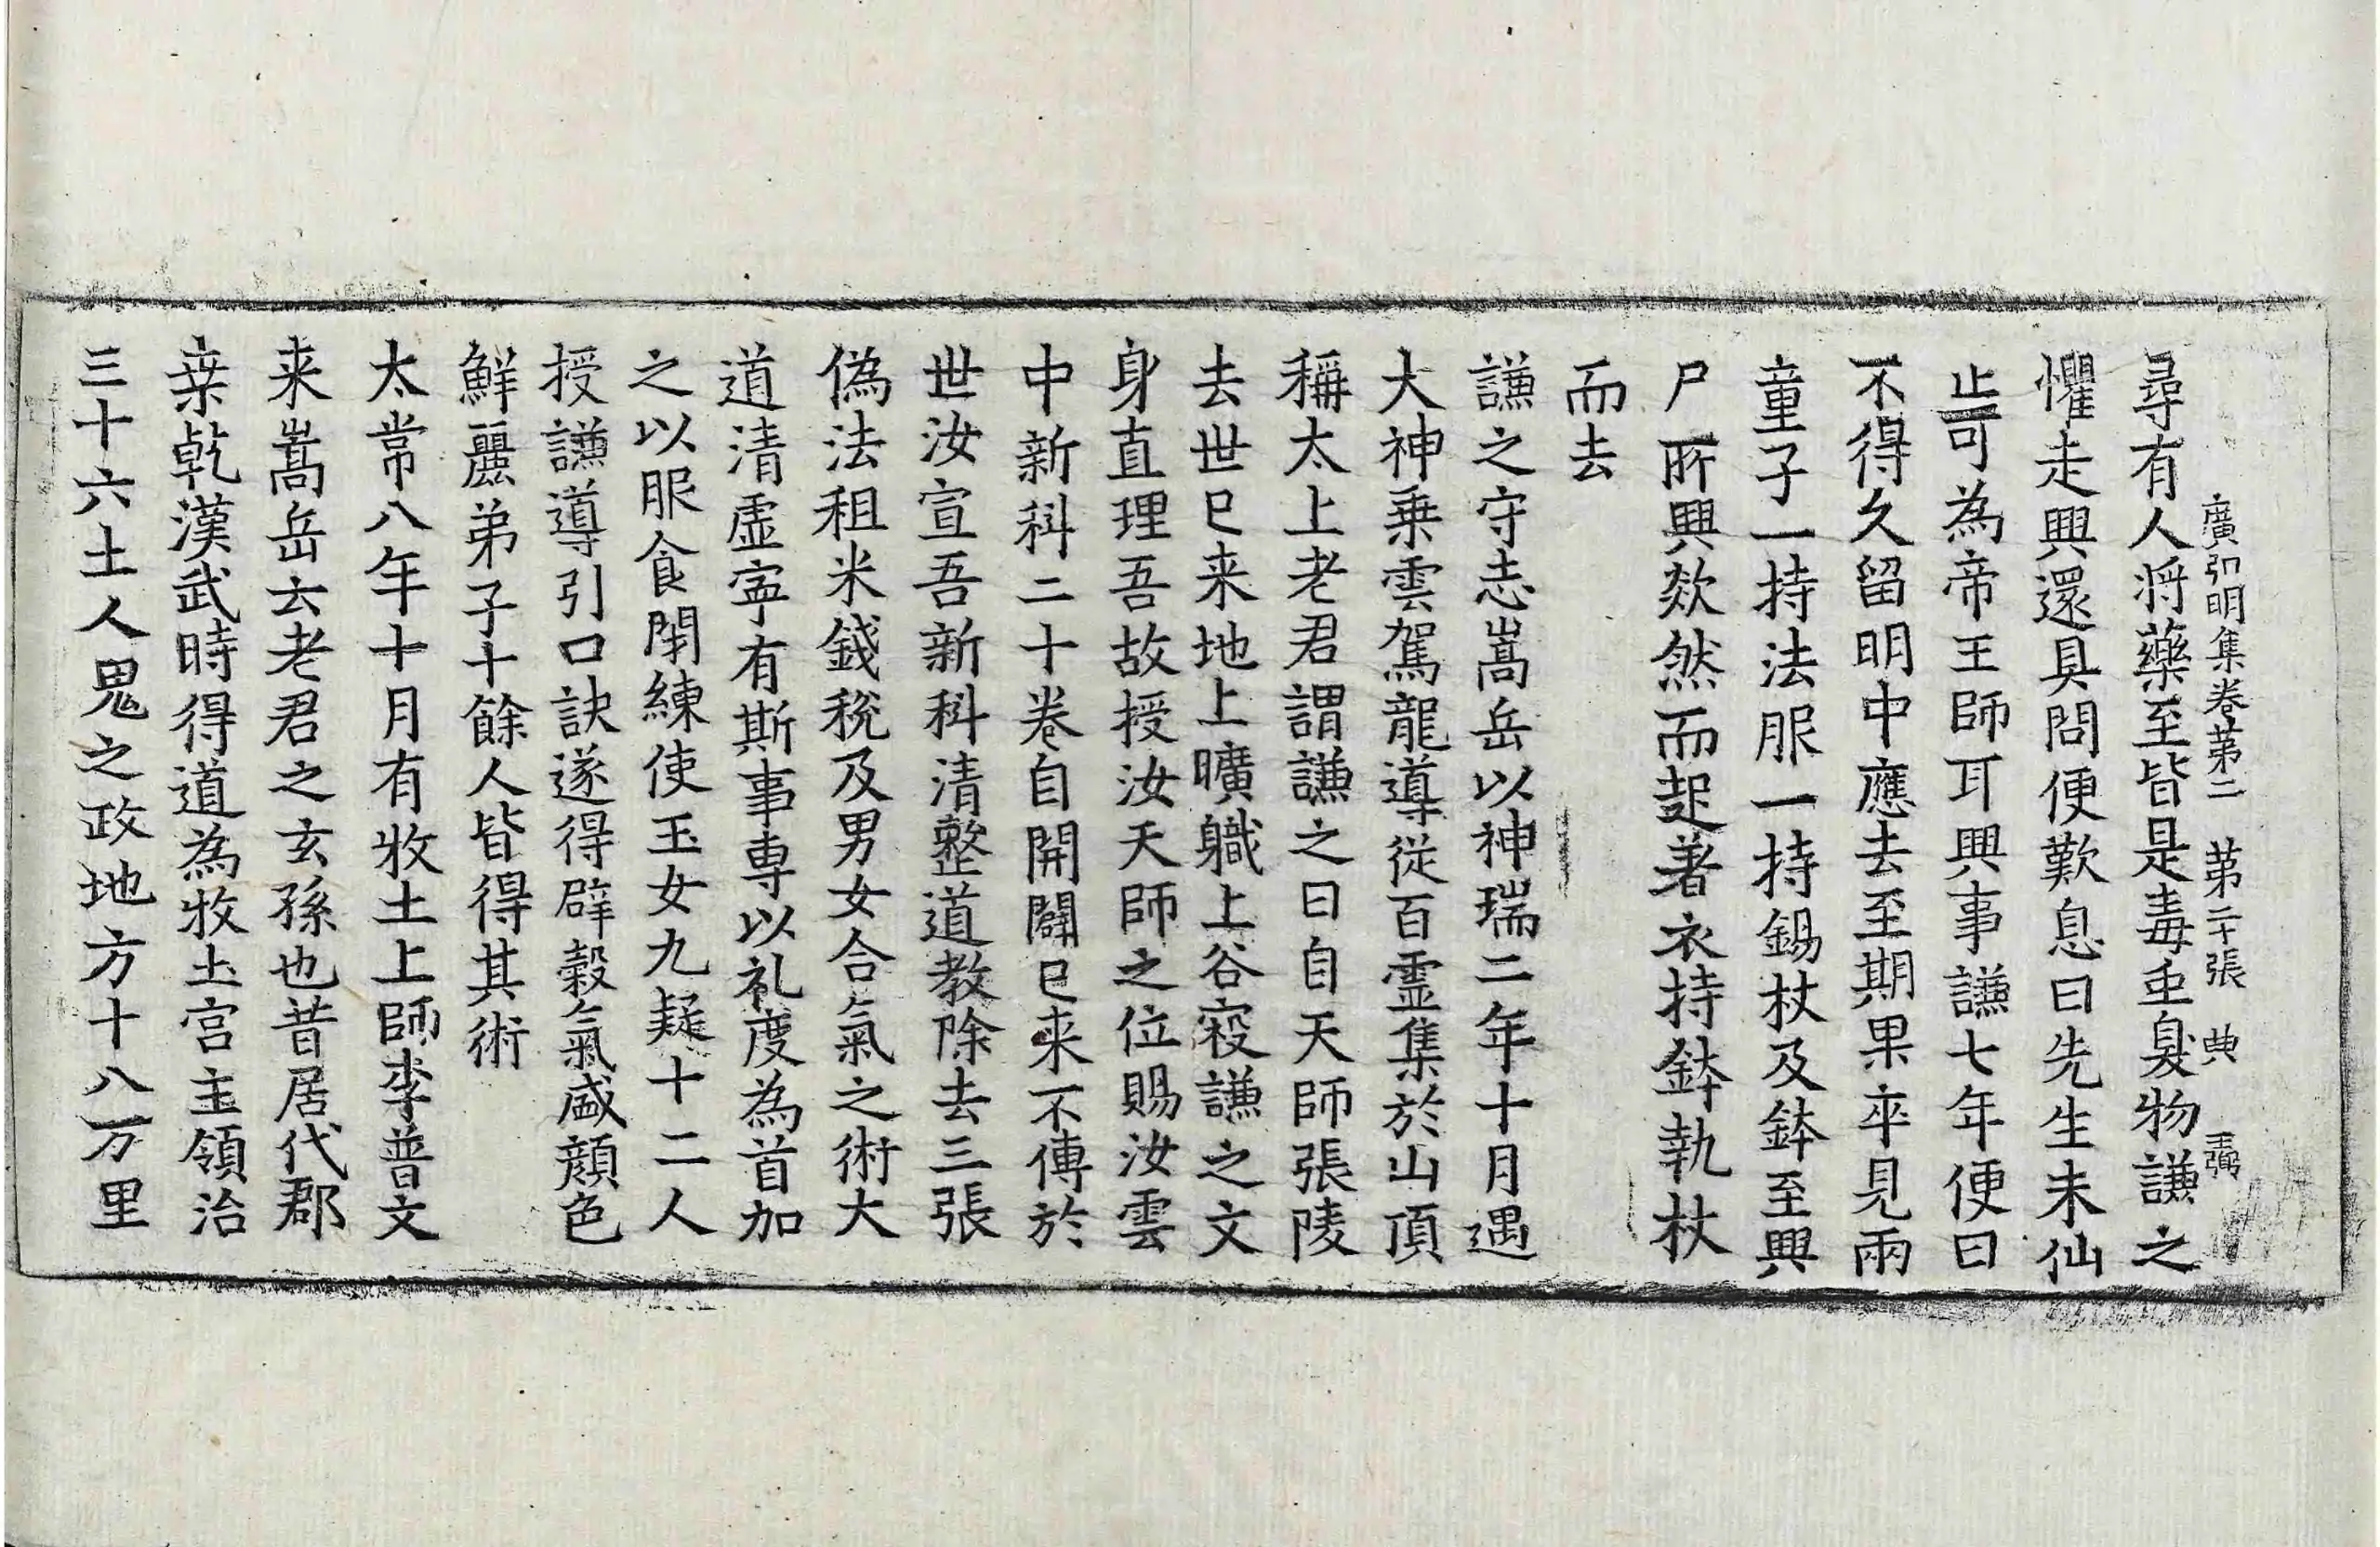 廣弘明集卷苐二　苐二十張　典　王弼
尋有人將藥至皆是毒虫臭物謙之
懼走興還具問便歎息曰先生未仙
止可為帝王師耳興事謙七年便曰
不得久留明中應去至期果卒見兩
童子一持法服一持錫杖及鉢至興
尸所興欻然而起著衣持鉢執杖
而去
謙之守志嵩岳以神瑞二年十月遇
大神乗雲駕龍導從百霊集於山頂
稱太上老君謂謙之曰自天師張陵
去世已来地上曠職上谷寇謙之文
身直理吾故授汝天師之位賜汝雲
中新科二十卷自開闢已来不傳於
世汝宣吾新科清整道教除去三張
偽法租米錢稅及男女合氣之術大
道清虛寧有斯事専以礼度為首加
之以服食閇練使玉女九疑十二人
授謙導引口訣遂得辟穀氣盛顔色
鮮麗弟子十餘人皆得其術
太常八年十月有牧土上師李普文
来嵩岳云老君之玄孫也昔居代郡
桒乾漢武時得道為牧土宫主領治
三十六土人鬼之政地方十八万里